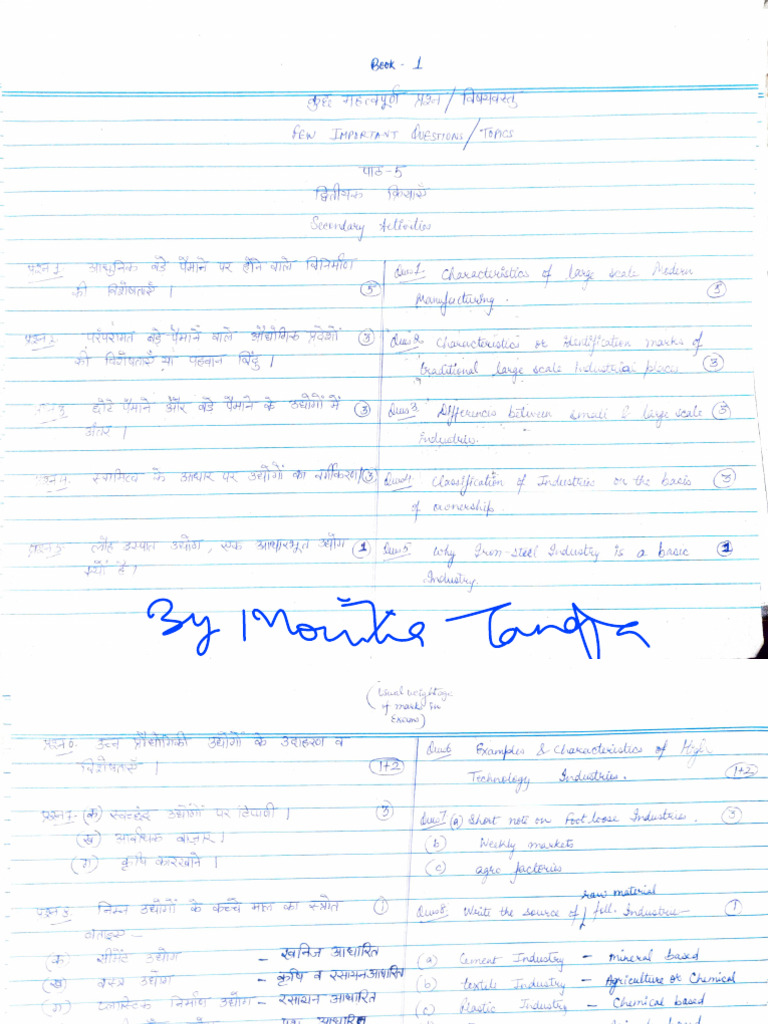 Book - 1
कुछ महत्वपूर्ण प्रश्न / विषयवस्तु
FEW IMPORTANT QUESTIONS / TOPICS
पाठ-5
द्वितीयक क्रियाएँ
Secondary Activities
प्रश्न 1. आधुनिक बड़े पैमाने पर होने वाले विनिर्माण
की विशेषताएँ । (5)
Ques 1. Characteristics of large scale Modern
Manufacturing. (5)
प्रश्न 2. परंपरागत बड़े पैमाने वाले औद्योगिक प्रदेशों (3)
की विशेषताएँ या पहचान बिंदु ।
Ques 2. Characteristics or identification marks of
traditional large scale Industrial places (3)
प्रश्न 3. छोटे पैमाने और बड़े पैमाने के उद्योगों में (3)
अंतर ।
Ques 3. Differences between small & large scale (3)
Industries.
प्रश्न 4. स्वामित्व के आधार पर उद्योगों का वर्गीकरण (3)
Ques 4. Classification of Industries on the basis (3)
of ownership.
प्रश्न 5. लौह इस्पात उद्योग, एक आधारभूत उद्योग (1)
क्यों है ।
Ques 5. Why Iron-steel Industry is a basic (1)
Industry.
By Monika
(usual weightage
of marks in
Exams)
प्रश्न 6. उच्च प्रौद्योगिकी उद्योगों के उदाहरण व
विशेषताएँ । (1+2)
Ques 6 Examples & Characteristics of High
Technology Industries. (1+2)
प्रश्न 7. (क) स्वच्छंद उद्योगों पर टिप्पणी । (3)
(ख) आवधिक बाज़ार ।
(ग) कृषि कारखाने ।
Ques 7 (a) Short note on Foot loose Industries. (3)
(b) Weekly markets
(c) agro factories
प्रश्न 8. निम्न उद्योगों के कच्चे माल का स्त्रोत (1)
बताइए -
(क) सीमेंट उद्योग - खनिज आधारित
(ख) वस्त्र उद्योग - कृषि व रसायन आधारित
(ग) प्लास्टिक निर्माण उद्योग - रसायन आधारित
आधारित
raw material
Ques 8. Write the source of foll. Industries - (1)
(a) Cement Industry - mineral based
(b) textile Industry - Agriculture or Chemical
(c) Plastic Industry - Chemical based